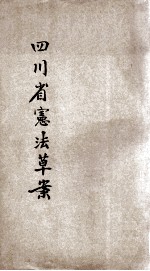 四川省憲法草案